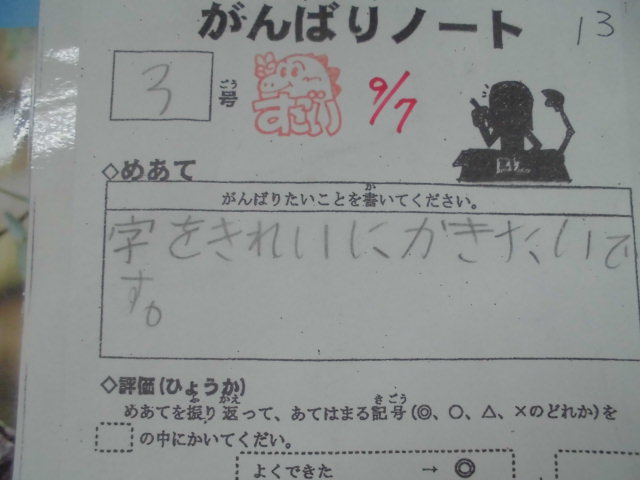 がんばりノート
13
3
ごう
号
すごい
9/7
◇めあて
がんばりたいことを書いてください。
か
字をきれいにかきたいで
す。
◇評価(ひょうか)
めあてを振り返って、あてはまる記号(◎、○、△、×のどれか)を
ふ かえ きごう
の中にかいてくだい。
よくできた → ◎